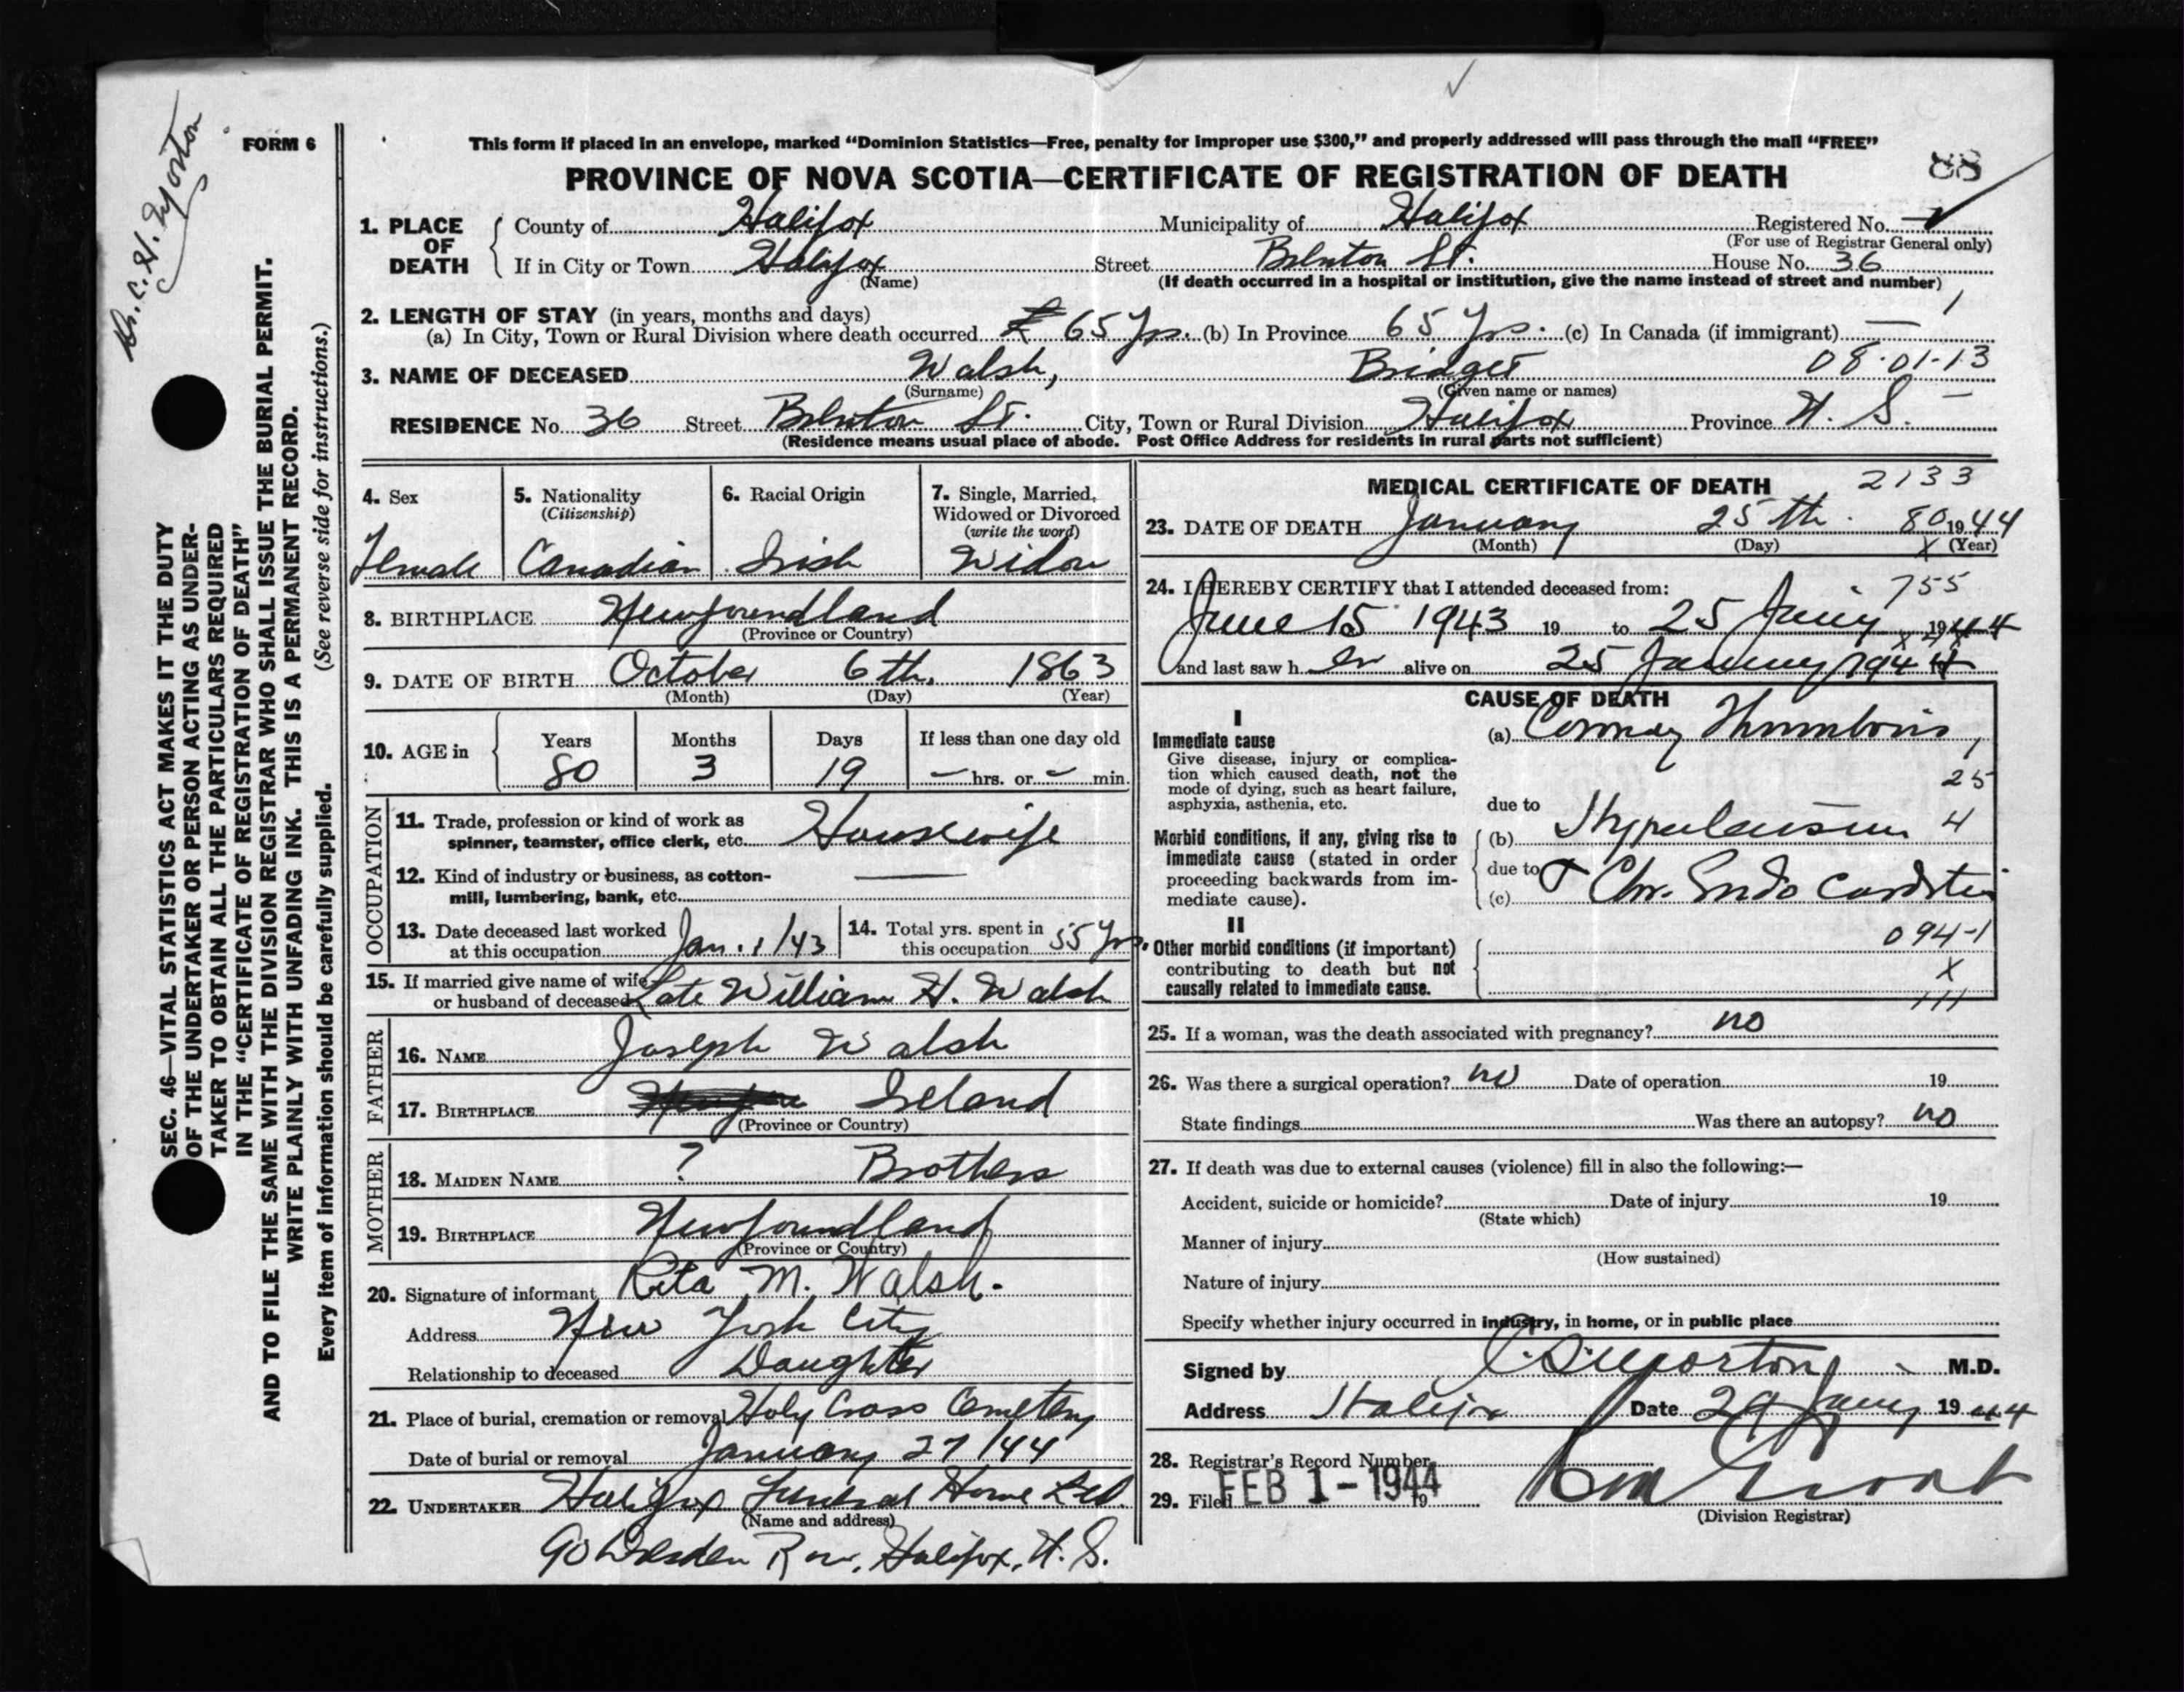 This form if placed in an envelope, marked "Dominion Statistics—Free, penalty for improper use $300," and properly addressed will pass through the mail "FREE"
FORM 6
88
PROVINCE OF NOVA SCOTIA—CERTIFICATE OF REGISTRATION OF DEATH
1. PLACE OF DEATH County of Halifax Municipality of Halifax Registered No.
(For use of Registrar General only)
If in City or Town Halifax Street Brenton St. House No. 36
(Name) (If death occurred in a hospital or institution, give the name instead of street and number)
2. LENGTH OF STAY (in years, months and days)
(a) In City, Town or Rural Division where death occurred 65 Yrs. (b) In Province 65 Yrs. (c) In Canada (if immigrant) — 1
3. NAME OF DECEASED Walsh, Bridget 08-01-13
(Surname) (Given name or names)
RESIDENCE No. 36 Street Brenton St. City, Town or Rural Division Halifax Province N. S.
(Residence means usual place of abode. Post Office Address for residents in rural parts not sufficient)
4. Sex 5. Nationality (Citizenship) 6. Racial Origin 7. Single, Married, Widowed or Divorced (write the word)
Female Canadian Irish Widow
8. BIRTHPLACE Newfoundland
(Province or Country)
9. DATE OF BIRTH October 6th, 1863
(Month) (Day) (Year)
10. AGE in Years Months Days If less than one day old
80 3 19 – hrs. or – min.
OCCUPATION
11. Trade, profession or kind of work as spinner, teamster, office clerk, etc. Housewife
12. Kind of industry or business, as cotton-
mill, lumbering, bank, etc. —
13. Date deceased last worked at this occupation Jan. 1/43 14. Total yrs. spent in this occupation 55 Yrs.
15. If married give name of wife
or husband of deceased Late William H. Walsh
FATHER
16. NAME Joseph Walsh
17. BIRTHPLACE Ireland
(Province or Country)
MOTHER
18. MAIDEN NAME ? Brothers
19. BIRTHPLACE Newfoundland
(Province or Country)
20. Signature of informant Rita M. Walsh.
Address New York City
Relationship to deceased Daughter
21. Place of burial, cremation or removal Holy Cross Cemetery
Date of burial or removal January 27/44
22. UNDERTAKER Halifax Funeral Home Ltd.
(Name and address)
90 Dresden Row, Halifax, N. S.
MEDICAL CERTIFICATE OF DEATH 2133
23. DATE OF DEATH January 25th. 80 1944
(Month) (Day) x (Year)
24. I HEREBY CERTIFY that I attended deceased from: 755
June 15 1943 19 to 25 Jany 1944
and last saw her alive on 25 January 1944
CAUSE OF DEATH
I
Immediate cause
Give disease, injury or complica-
tion which caused death, not the
mode of dying, such as heart failure,
asphyxia, asthenia, etc.
(a) Coronary Thrombosis 1
25
due to
Morbid conditions, if any, giving rise to
immediate cause (stated in order
proceeding backwards from im-
mediate cause).
(b) Hypertension 4
due to
(c) Chr. Endo carditis
II
Other morbid conditions (if important)
contributing to death but not
causally related to immediate cause.
094-1
x
111
25. If a woman, was the death associated with pregnancy? no
26. Was there a surgical operation? no Date of operation 19
State findings Was there an autopsy? no
27. If death was due to external causes (violence) fill in also the following:—
Accident, suicide or homicide? Date of injury 19
(State which)
Manner of injury
(How sustained)
Nature of injury
Specify whether injury occurred in industry, in home, or in public place
Signed by M.D.
Address Halifax Date 29 Jany 1944
28. Registrar's Record Number
29. Filed FEB 1-1944 19
(Division Registrar)
SEC. 46—VITAL STATISTICS ACT MAKES IT THE DUTY
OF THE UNDERTAKER OR PERSON ACTING AS UNDER-
TAKER TO OBTAIN ALL THE PARTICULARS REQUIRED
IN THE "CERTIFICATE OF REGISTRATION OF DEATH"
AND TO FILE THE SAME WITH THE DIVISION REGISTRAR WHO SHALL ISSUE THE BURIAL PERMIT.
WRITE PLAINLY WITH UNFADING INK. THIS IS A PERMANENT RECORD.
Every item of information should be carefully supplied. (See reverse side for instructions.)